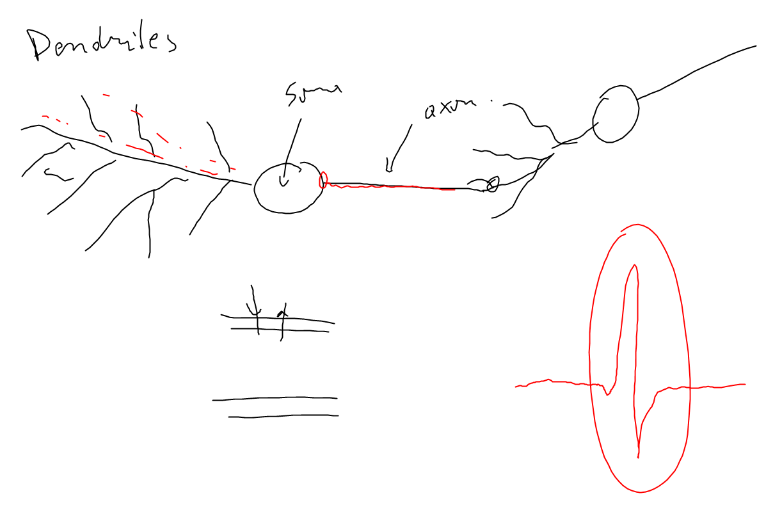 Dendrites
Soma
axon.